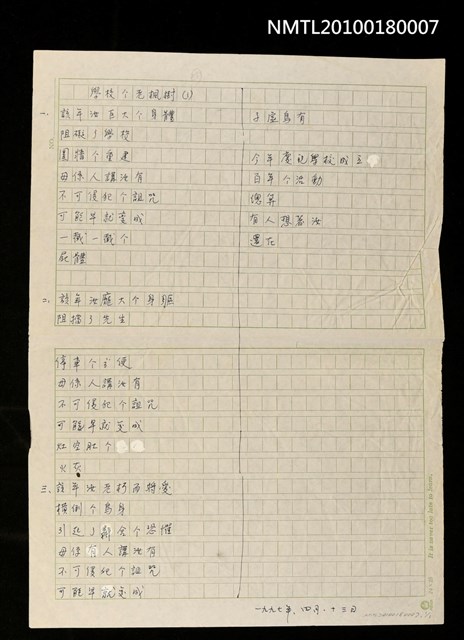 NMTL20100180007
學校个老楓樹(1)
一、該年汝巨大个身體
阻礙了學校
圍牆个重建
毋係人講汝有
不可侵犯个詛咒
可能早就變成
一截一截个
屍體
二、該年汝龐大个身軀
阻擋了先生
停車个方便
毋係人講汝有
不可侵犯个詛咒
可能早就變成
灶空肚个
火灰
三、該年汝老朽而將愛
橫倒个烏身
引起了辭会个恐懼
毋係有人講汝有
不可侵犯个詛咒
可能早就變成
子虛烏有
今年慶祝學校成立
百年个活動
總算
有人想著汝
還在
一九九七年、四月、十三日